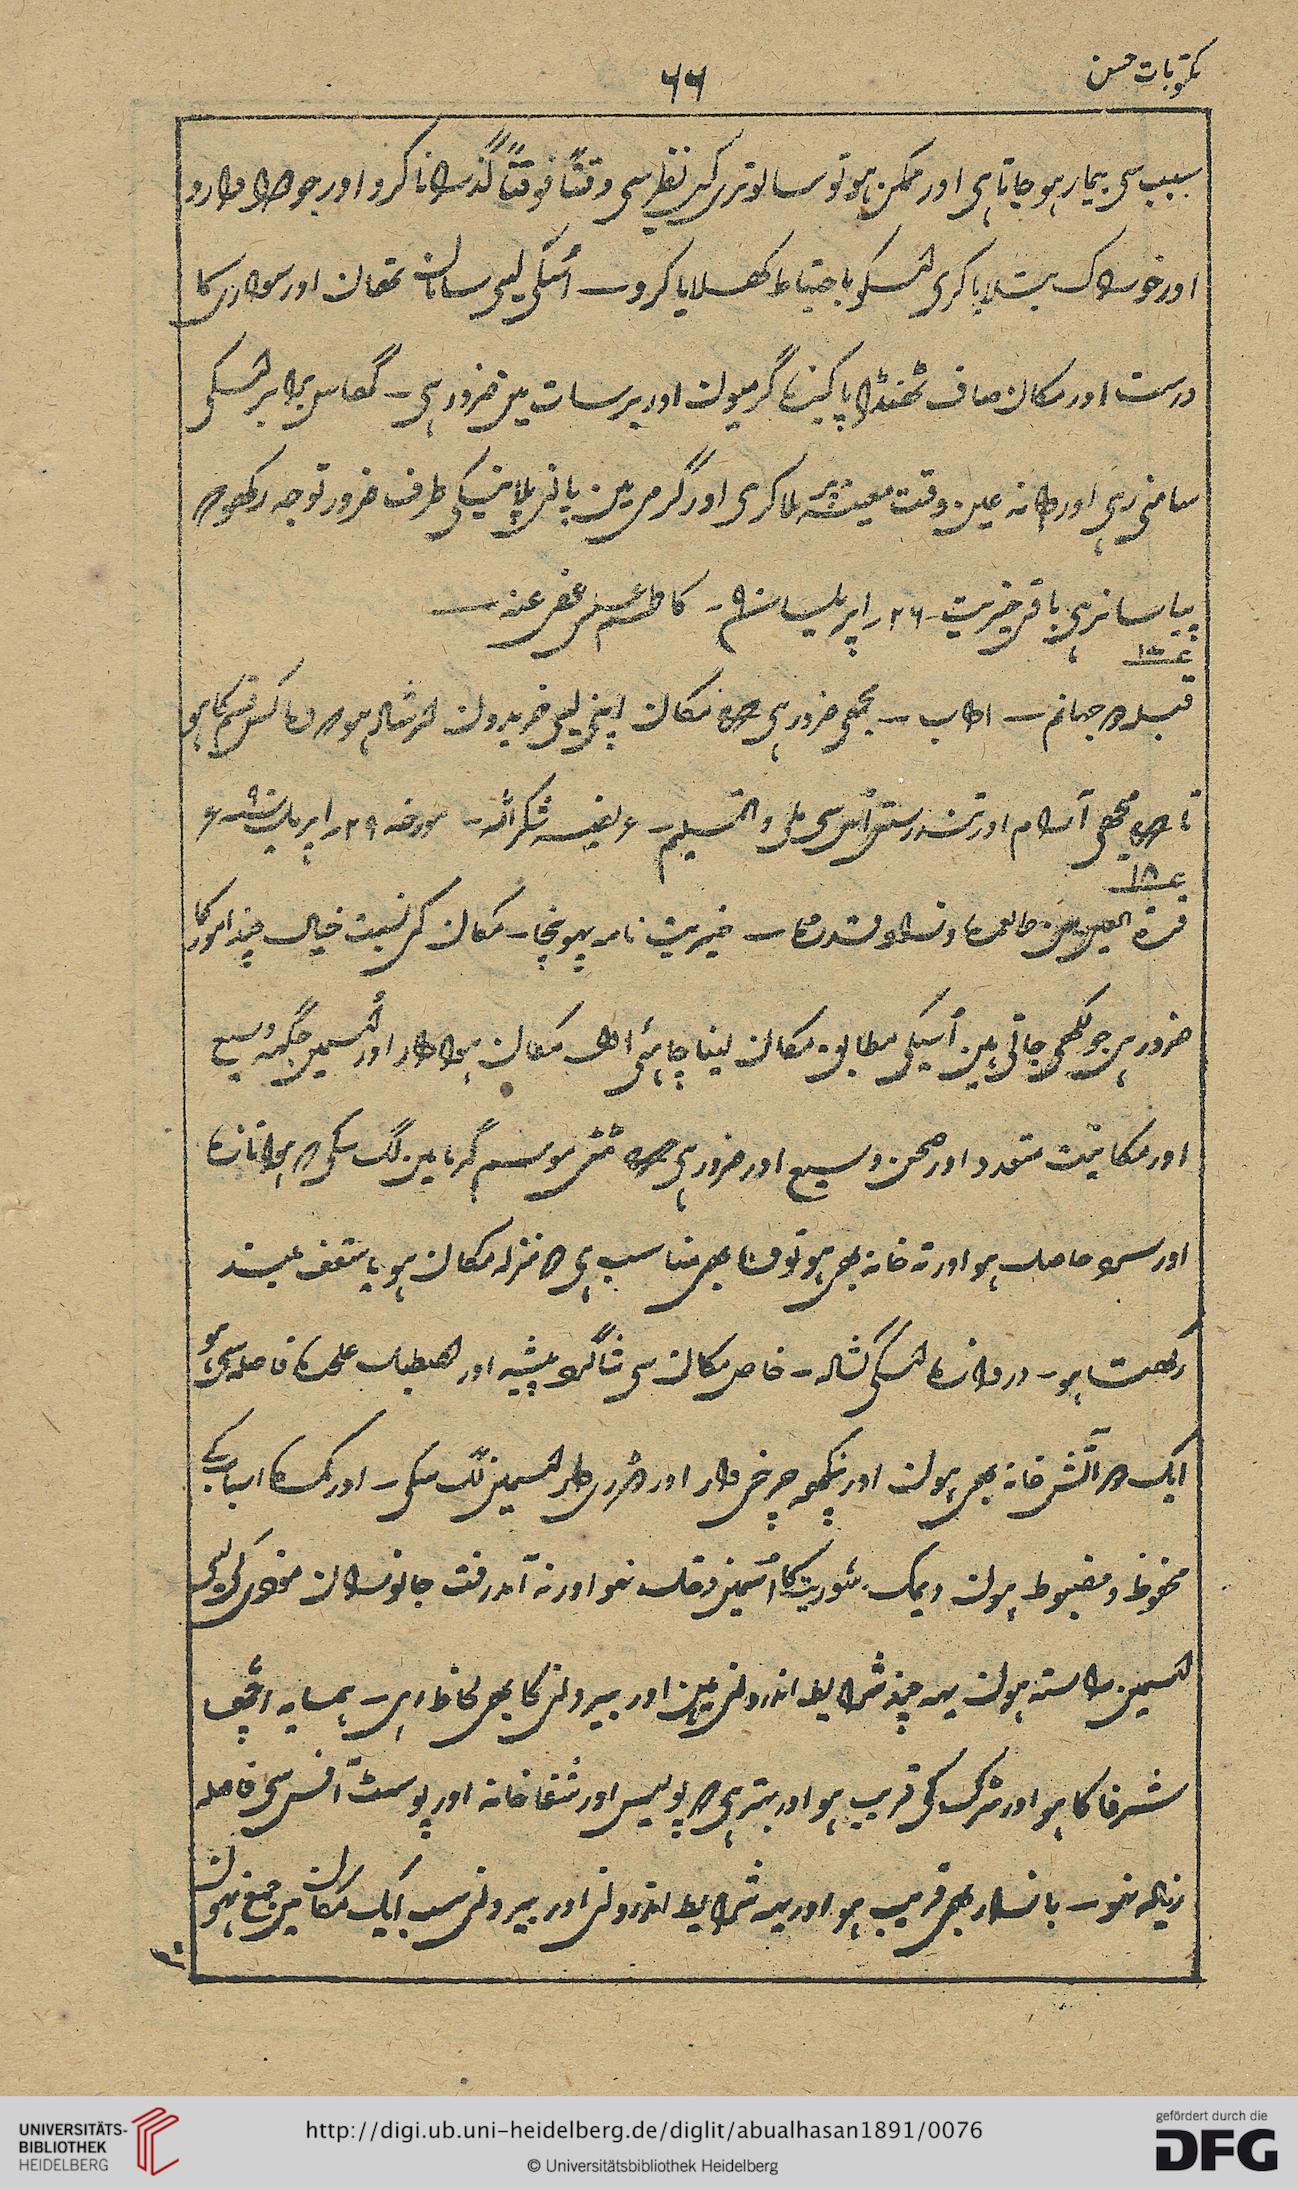 مکتوبات حسن
۶۶
سبب سی بیمار ہو جاتا ہی اور ممکن ہو تو سالوتری کی نظر سی وقتًا فوقتًا گذرانا کرو اور جو دوا دارو
اور خوراک بتلایا کری اسکو باحتیاط کھلایا کرو۔ اُسکی لیی سامان تھان اور سواری کا
درست اور مکان صاف ٹھنڈا پاکیزہ گرمیون اور برسات مین ضرور ہی۔ گھاس برابر اسکی
سامنی رہی اور دانہ عین وقت معینہ پر ملا کری اور گرمی مین پانی پلانیکی طرف ضرور توجہ رکھو کہ
پیاسا نرہی باقی خیریت۔ ۲۶؍ اپریل سنہ ۹۰۔ کاظم علی عفی عنہ۔
ع۱۷
قبلہ جہانم۔ اداب۔ مجھی ضرور ہی کہ مکان اپنی لیی خریدون ارشاد ہو کہ وہ کس قسم کا ہو
تا کہ مجھی آرام اور تندرستی اُس سی ملی والتسلیم۔ عریضہ شکر اللہ۔ مورخہ ۲۹؍ اپریل سنہ ۹۰ ع
ع۱۸
قرة العین من طالعمرہ وزاد قدرہ۔ خیریت نامہ پہونچا۔ مکان کی نسبت خیال چند امور کا
ضرور ہی جو لکھی جاتی ہین اُسیکی مطابق مکان لینا چاہئی اول مکان ہوادار اور اُسمین جگہہ وسیع
اور مکانیت متعدد اور صحن وسیع اور ضرور ہی کہ ٹٹی موسم گرما مین لگ سکی کہ ہوا تازہ
اور سرد حاصل ہو اور تہ خانہ بھی ہو تو وہ بھی مناسب ہی دو منزلہ مکان ہو یا سقف بلند
رکھتا ہو۔ دروازہ اسکی کشادہ۔ خاص مکان سی شاگرد پیشہ اور اصطبل علحدہ فاصلہ سی ہو
ایک دو آتش خانہ بھی ہون اور پنکھہ چرخی دار اور ڈوری دار اسمین لگ سکی۔ اور کمرہ اسباب کے
محفوظ و مضبوط ہون دیمک شوریت کا اُسمین دخل نہو اور نہ آمدرفت جانوران موذی کی لیی
اسمین راستہ ہون یہہ چند شرایط اندرونی ہین اور بیرونی کا بھی لحاظ رہی۔ ہمسایہ اچھی
شرفا کا ہو اور سڑک کی قریب ہو اور بہتر ہی کہ پولیس اور شفاخانہ اور پوسٹ آفس سی فاصلہ
زیادہ نہو۔ بازار بھی قریب ہو اور یہہ شرایط اندرونی اور بیرونی سب ایک مکان مین جمع نہون
UNIVERSITÄTS-
BIBLIOTHEK
HEIDELBERG
http://digi.ub.uni-heidelberg.de/diglit/abualhasan1891/0076
© Universitätsbibliothek Heidelberg
gefördert durch die
DFG